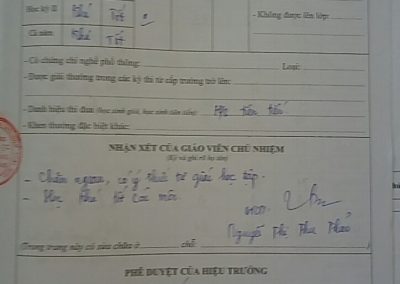 Học kỳ II Khá Tốt
- Không được lên lớp:
Cả năm Khá Tốt
- Có chứng chỉ nghề phổ thông: Loại:
- Được giải thưởng trong các kỳ thi từ cấp trường trở lên:
- Danh hiệu thi đua (học sinh giỏi, học sinh tiên tiến) HS tiên tiến
- Khen thưởng đặc biệt khác:
NHẬN XÉT CỦA GIÁO VIÊN CHỦ NHIỆM
(Ký và ghi rõ họ tên)
- Chăm ngoan, có ý thức tự giác học tập.
- Học khá tốt các môn.
Nguyễn Thị Thu Thảo
Trong trang này có sửa chữa ở chỗ
PHÊ DUYỆT CỦA HIỆU TRƯỞNG